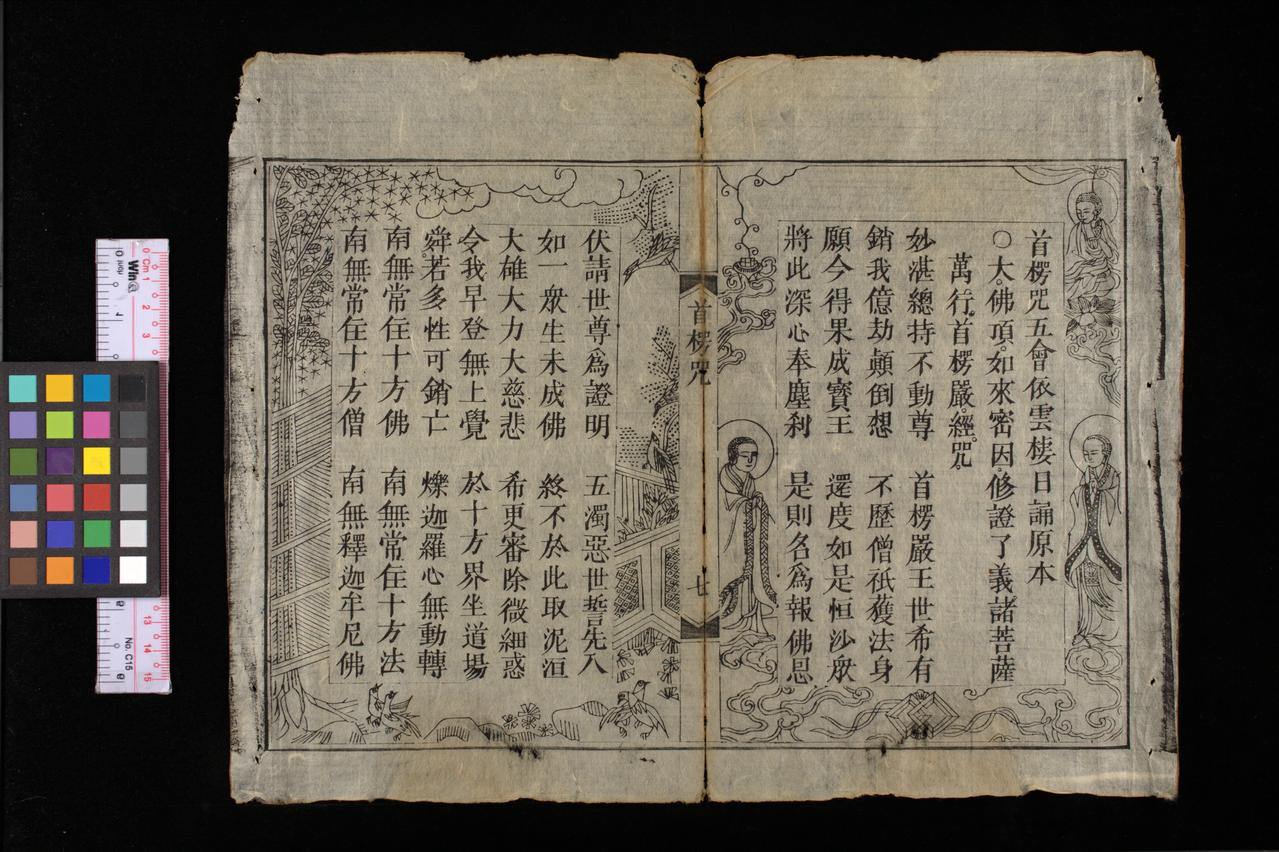 首楞咒五會依雲棲日誦原本
○大佛頂如來密因修證了義諸菩薩
萬行首楞嚴經咒
妙湛總持不動尊　首楞嚴王世希有
銷我億劫顛倒想　不歷僧祇獲法身
願今得果成寶王　還度如是恒沙衆
將此深心奉塵剎　是則名爲報佛恩
首楞咒
七
伏請世尊爲證明　五濁惡世誓先入
如一衆生未成佛　終不於此取泥洹
大雄大力大慈悲　希更審除微細惑
令我早登無上覺　於十方界坐道場
舜若多性可銷亡　爍迦羅心無動轉
南無常住十方佛　南無常住十方法
南無常住十方僧　南無釋迦牟尼佛
Cm 1
2
3
13
14
15
No. C15